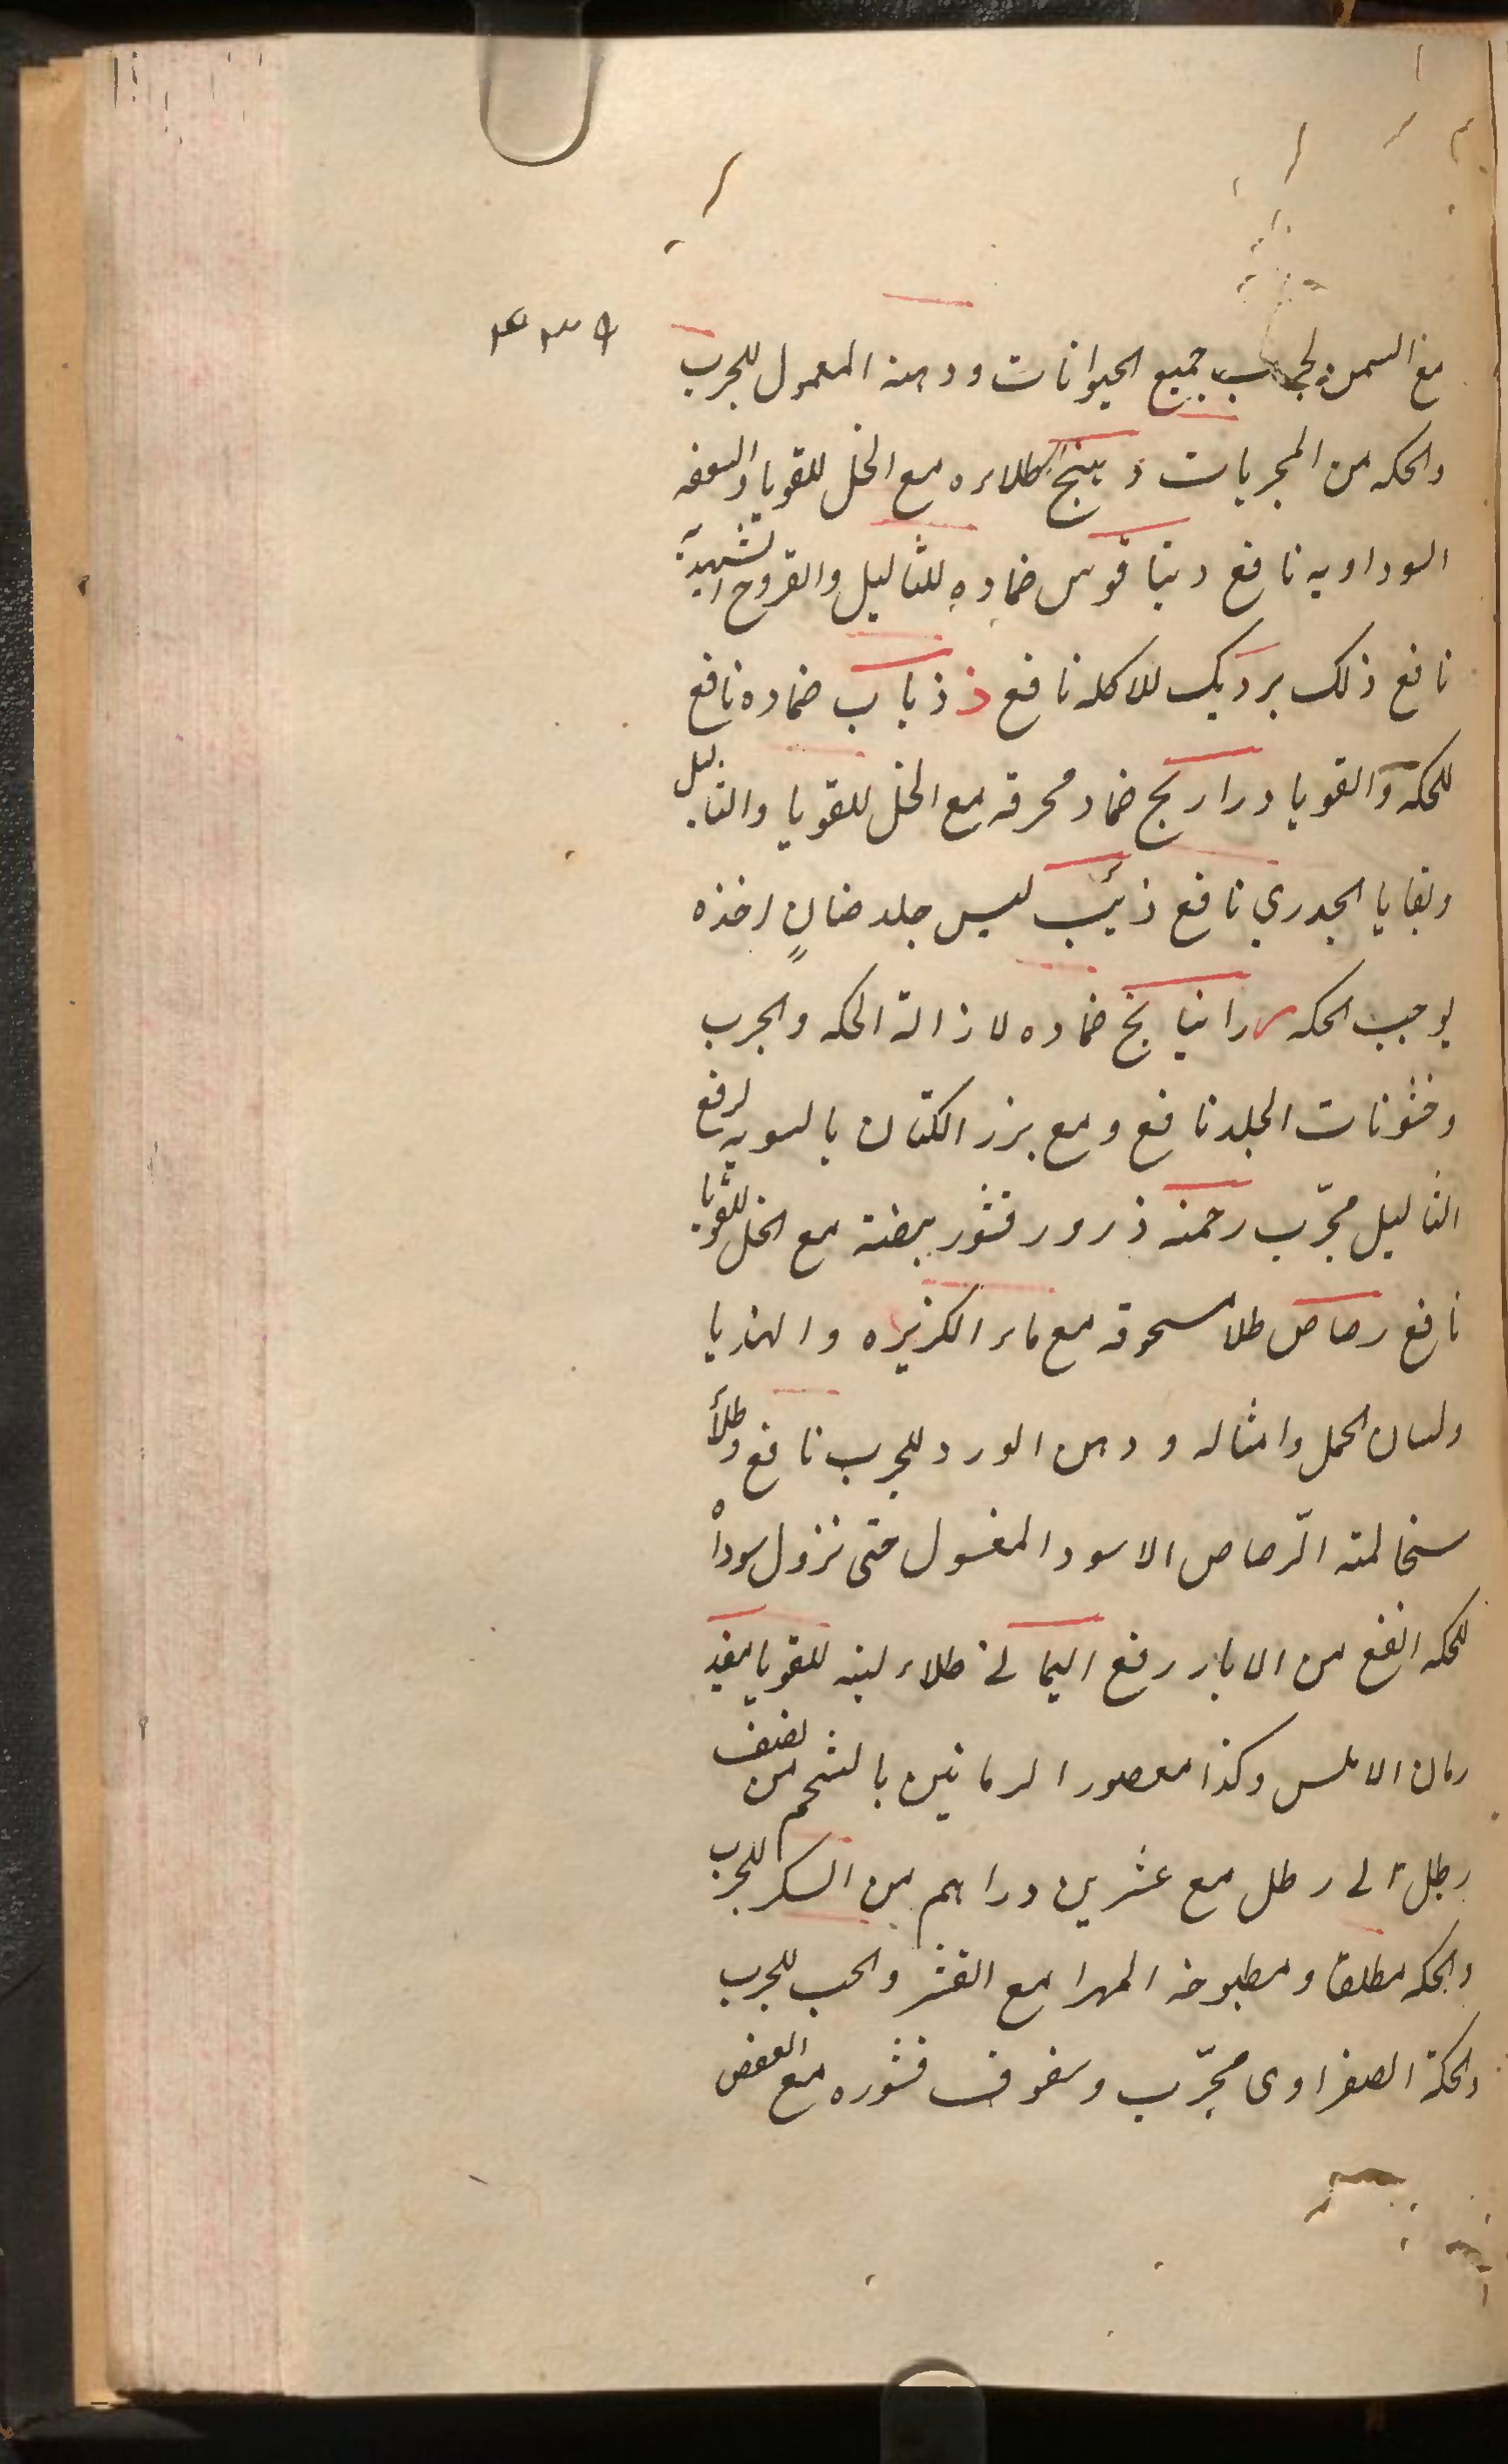 ٤٣٩
مع السمن لجرب جميع الحيوانات ودهنه المعمول للجرب
والحكه من المجربات د طلاءه مع الخل للقوبا والسعفه
السوداويه نافع دينا قوس ضماده للثاليل والقروح الشهدية
نافع ذلك برديك للاكله نافع ذ ذباب ضماده نافع
للحكه والقوبا دراريح ضماد محرقه مع الخل للقوبا والثاليل
وبقايا الجدري نافع ذئب لبس جلد ضانٍ اخذه
يوجب الحكه ر راتيانج ضماده لازالة الحكه والجرب
وخشونات الجلد نافع ومع بزر الكتان بالسويه لرفع
الثاليل مجرّب رخمه ذرور قشور بيضته مع الخل للقوبا
نافع رصاص طلا مسحوقه مع ماء الكزبره والهندبا
ولسان الحمل وامثاله ودهن الورد للجرب نافع وطلأ
سخالته الرّصاص الاسود المغسول حتى تزول سوداه
للحكه انفع من الابار رقع اليماني طلاء لبنه للقوبا مفيد
رمان الاملس وكذا معصور الرمانين بالشحم من نصف
رطل الى رطل مع عشرين دراهم من السكر للجرب
والحكه مطلقا ومطبوخه المهرا مع القشر والحب للجرب
والحكة الصفراوى مجرّب وسفوف قشوره مع العفص